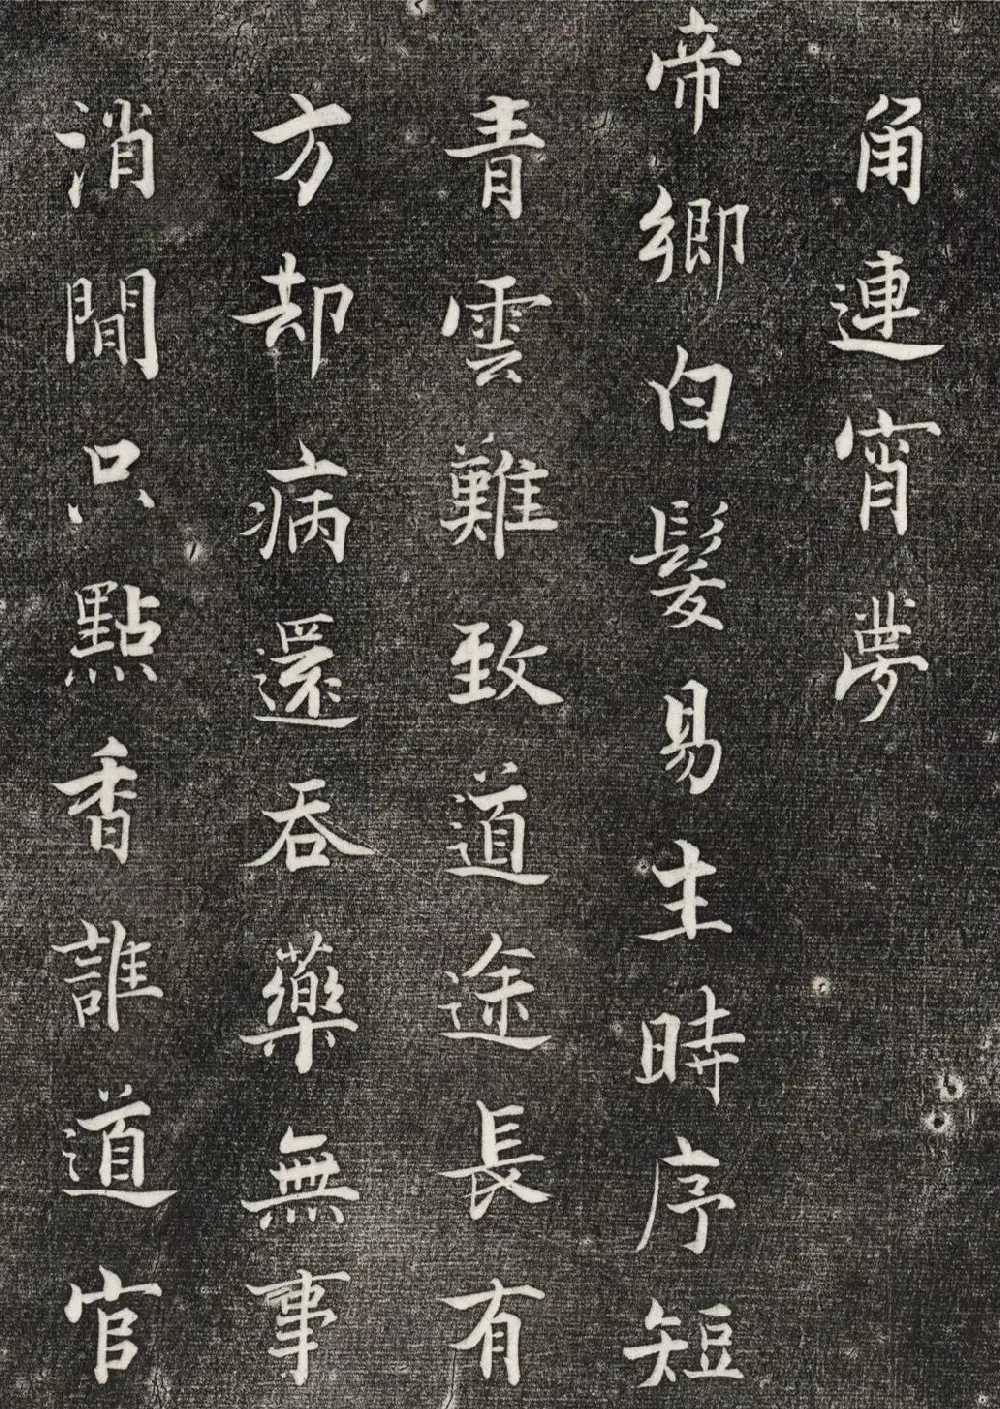 角連宵夢
帝鄉白髮易生時序短
青雲難致道途長有
方却病還吞藥無事
消閒只點香誰道官